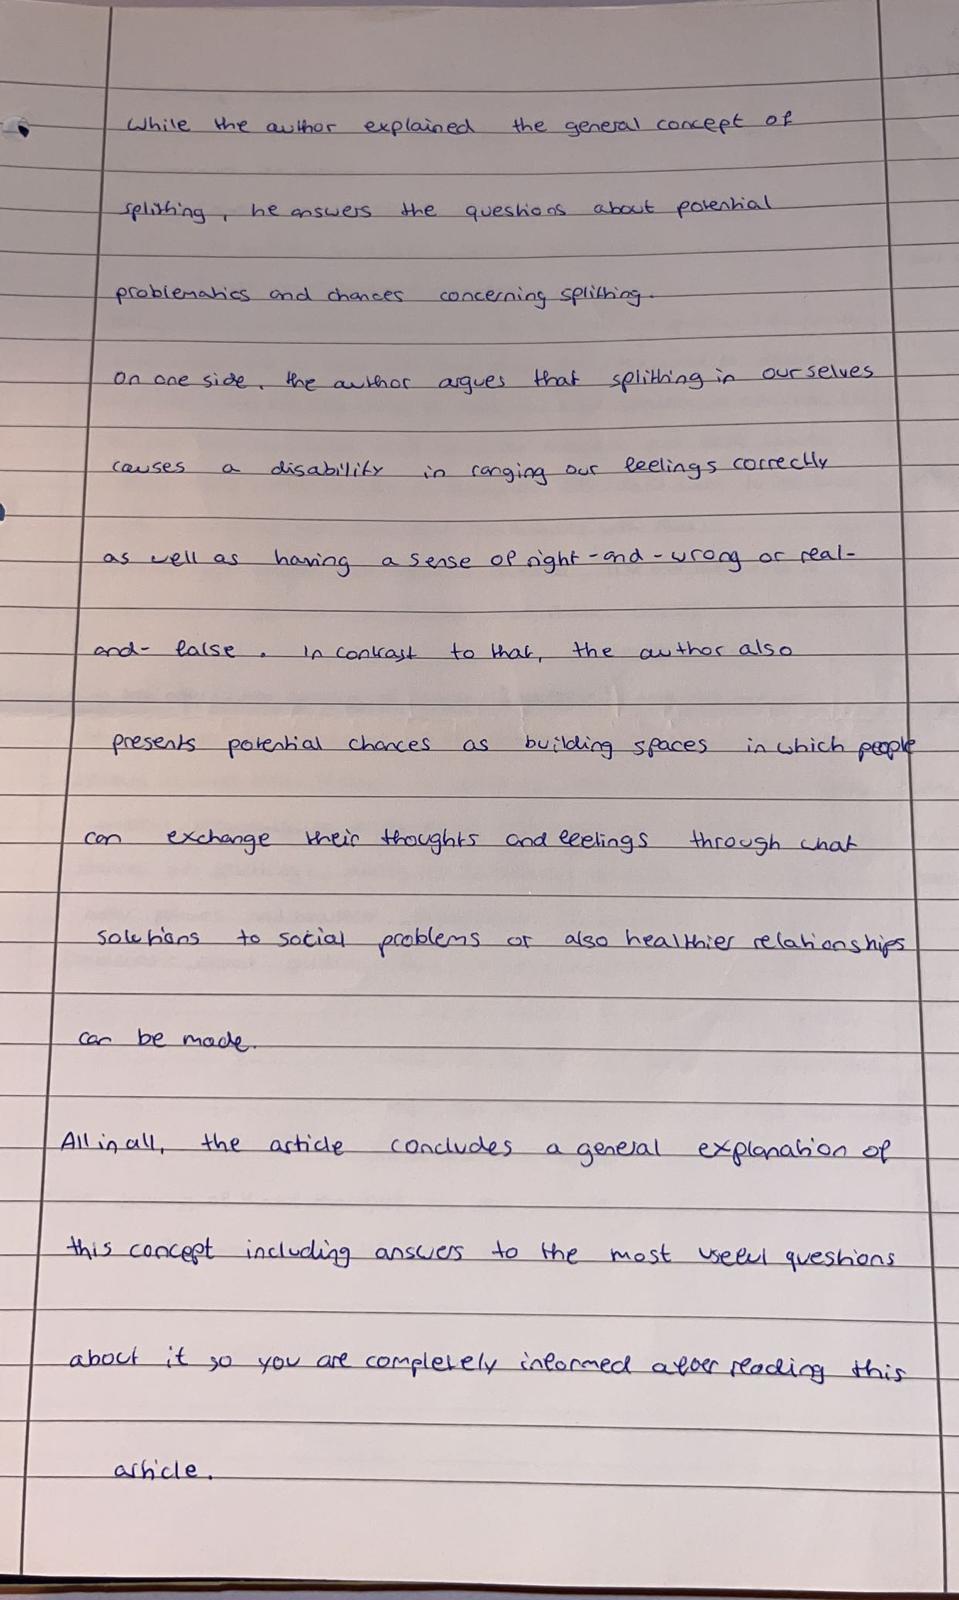 While the author explained the general concept of
splitting, he answers the questions about potential
problematics and chances concerning splitting.
On one side, the author argues that splitting in ourselves
causes a disability in ranging our feelings correctly
as well as having a sense of right-and-wrong or real-
and-false. In contrast to that, the author also
presents potential chances as building spaces in which people
can exchange their thoughts and feelings through chat
solutions to social problems or also healthier relationships
can be made.
All in all, the article concludes a general explanation of
this concept including answers to the most useful questions
about it so you are completely informed after reading this
article.